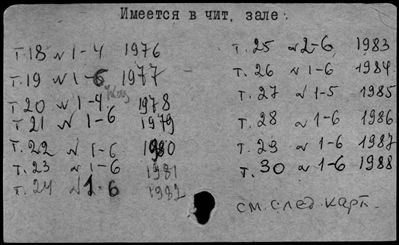 Имеется в чит. зале:
т. 18 № 1-4 1976
т. 19 № 1-6 1977
т. 20 № 1-4 1978
т. 21 № 1-6 1979
т. 22 № 1-6 1980
т. 23 № 1-6 1981
т. 24 № 1-6 1982
т. 25 № 2-6 1983
т. 26 № 1-6 1984
т. 27 № 1-5 1985
т. 28 № 1-6 1986
т. 29 № 1-6 1987
т. 30 № 1-6 1988
см. след. карт.